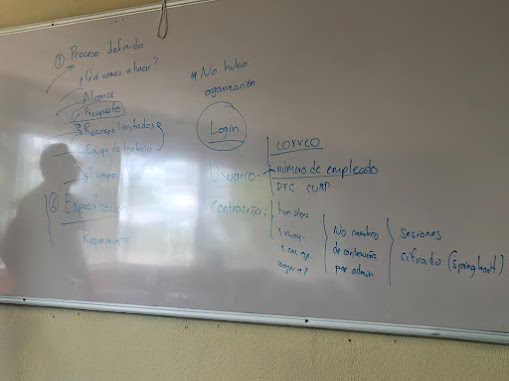 ① Proceso definido
¿Qué vamos a hacer?
Alcance
Presupuesto
Recursos limitados
Equipo de trabajo
Tiempo
②
* No hubo
organización
Login
correo
Usuario: número de empleado
RFC CURP
Contraseña:
1 may.
No cambio
de contraseña
por admin
Sesiones
cifrado (Spring boot)